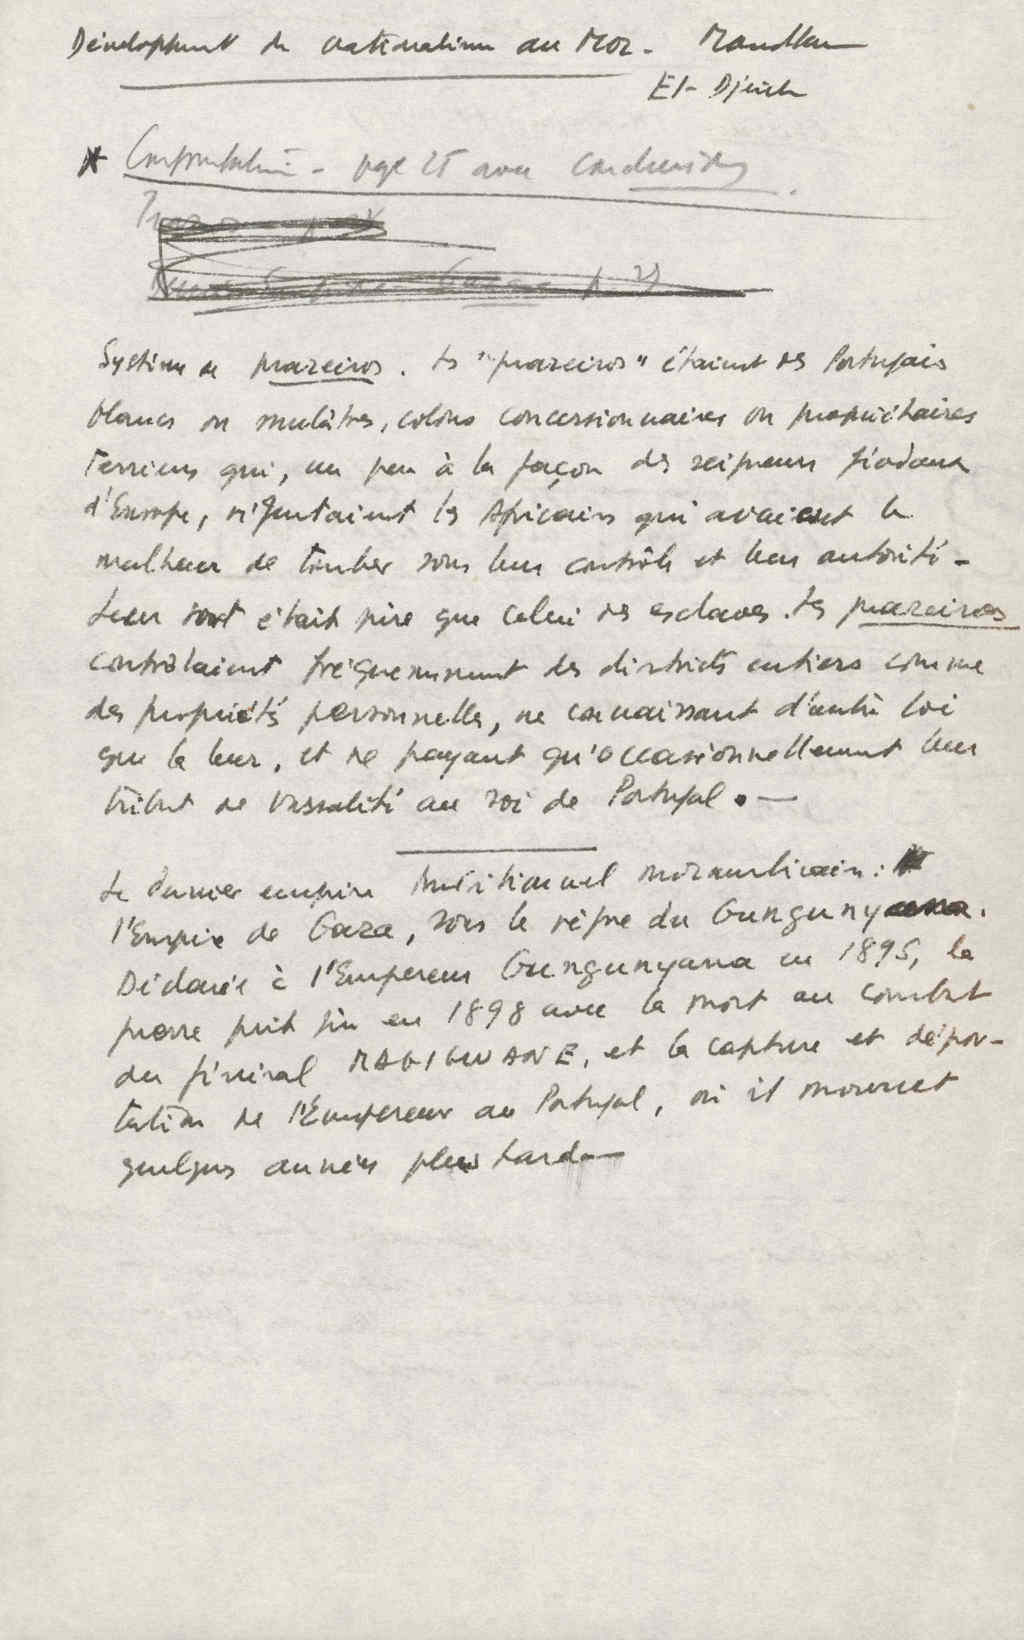 Développement du nationalisme au Moz - Mondlane
El-Djeich
* - page 25 avec
Système de prazeiros. Les "prazeiros" étaient des Portugais
blancs ou mulâtres, colons concessionnaires ou propriétaires
terriens qui, un peu à la façon des seigneurs féodaux
d'Europe, régentaient les Africains qui avaient le
malheur de tomber sous leur contrôle et leur autorité -
Leur sort était pire que celui des esclaves. Les prazeiros
contrôlaient fréquemment des districts entiers comme
des propriétés personnelles, ne connaissant d'autre loi
que la leur, et ne payant qu'occasionnellement leur
tribut de vassalité au roi de Portugal. -
Le dernier empire traditionnel mozambicain :
l'Empire de Gaza, sous le règne du Gungunyana.
Déclarée à l'Empereur Gungunyana en 1895, la
guerre prit fin en 1898 avec la mort au combat
du général MAGIGWANE, et la capture et dépor-
tation de l'Empereur au Portugal, où il mourut
quelques années plus tard -